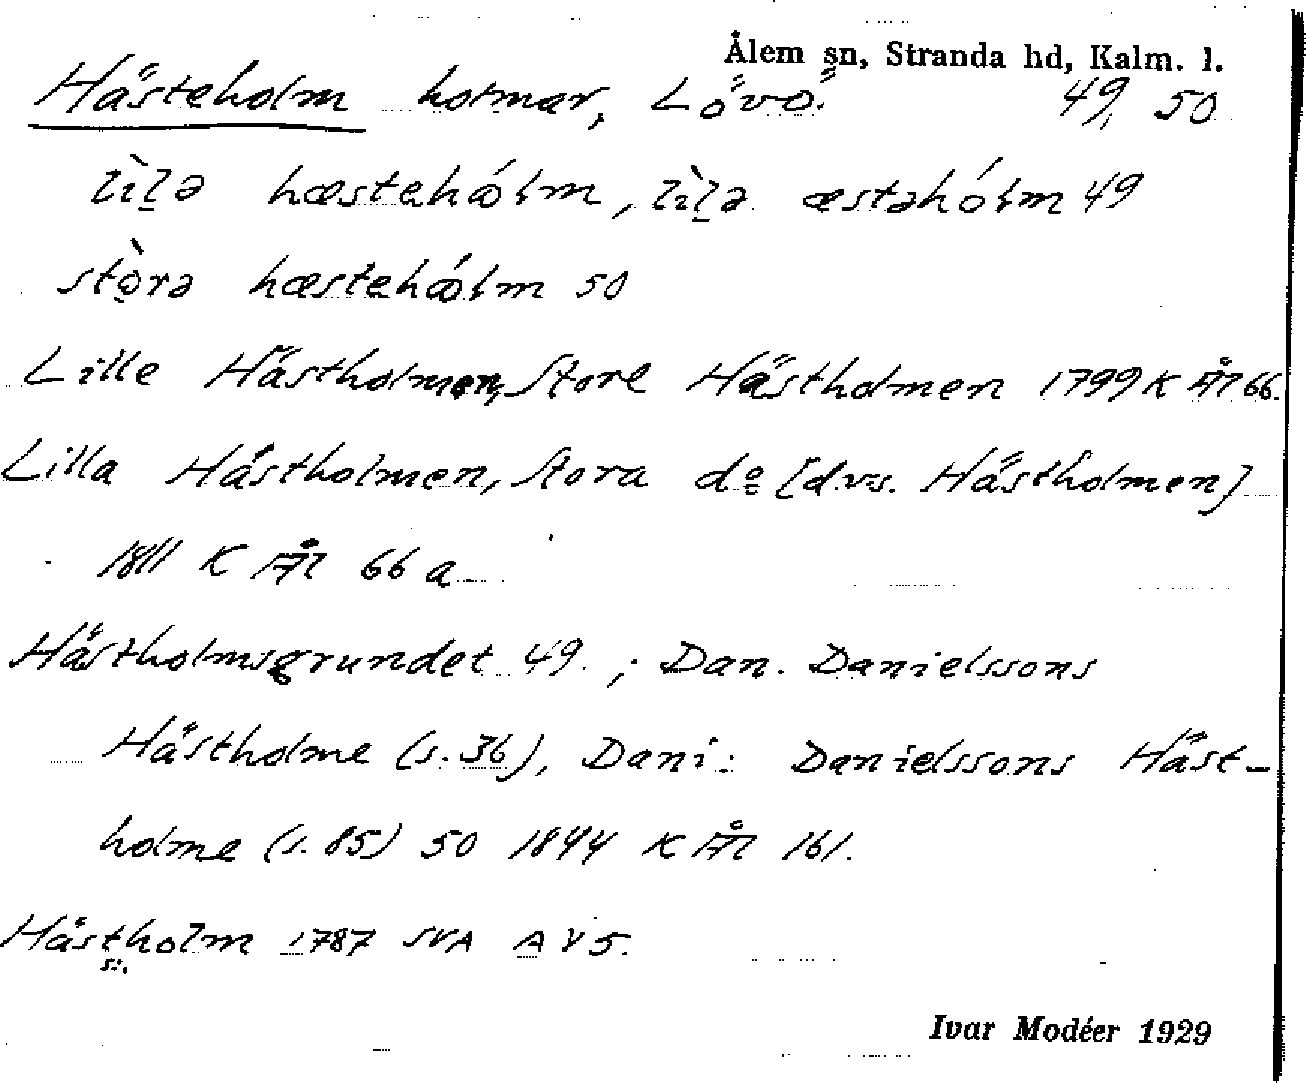 Ålem sn, Stranda hd, Kalm. l.
Hästeholm holmar, Lövö. 49, 50
lìlə hæstehólm, lìlə æstəhólm 49
stòrə hæstehólm 50
Lille Hästholmen, Store Hästholmen 1799 K Ål 66.
Lilla Hästholmen, Stora do [dvs. Hästholmen]
1811 K Ål 66 a
Hästholmsgrundet 49. ; Dan. Danielssons
Hästholme (s. 36), Dani: Danielssons Häst-
holme (s. 85) 50 1844 K Ål 161.
Hästholm 1787 SVA A V 5.
Ivar Modéer 1929